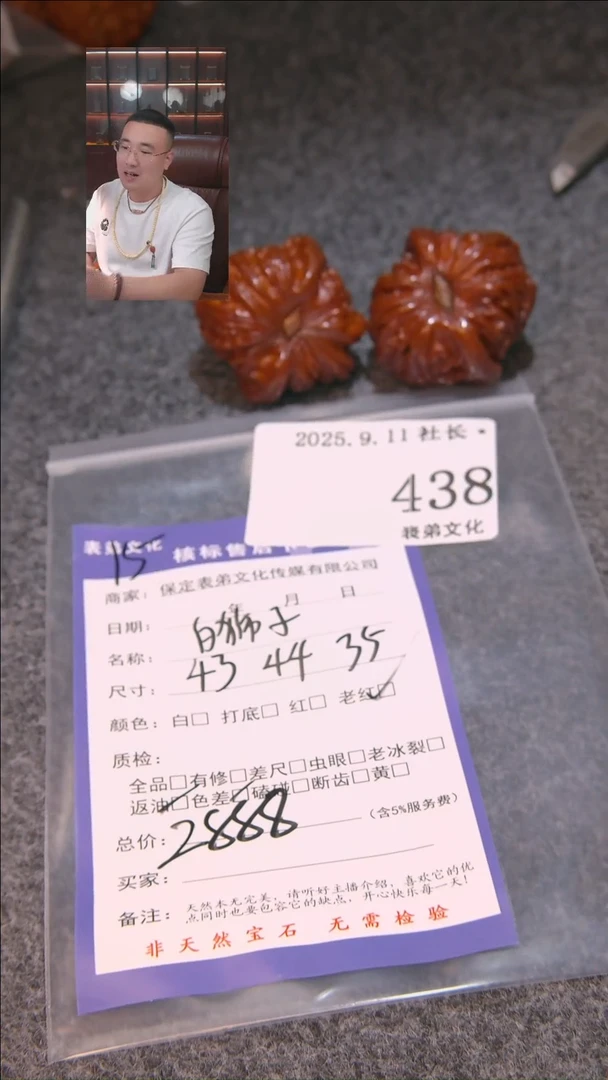 2025.9.11 社长·
438
表弟文化
表弟文化 核标售后
15
商家：保定表弟文化传媒有限公司
日期： 年 月 日
名称：白狮子
尺寸：43 44 35
颜色：白□ 打底□ 红□ 老红□
质检：
全品□有修□差尺□虫眼□老冰裂□
返油□色差□磕碰□断齿□黄□
总价：2888 （含5%服务费）
买家：
备注：天然本无完美，请听好主播介绍，喜欢它的优
点同时也要包容它的缺点，开心快乐每一天！
非天然宝石 无需检验